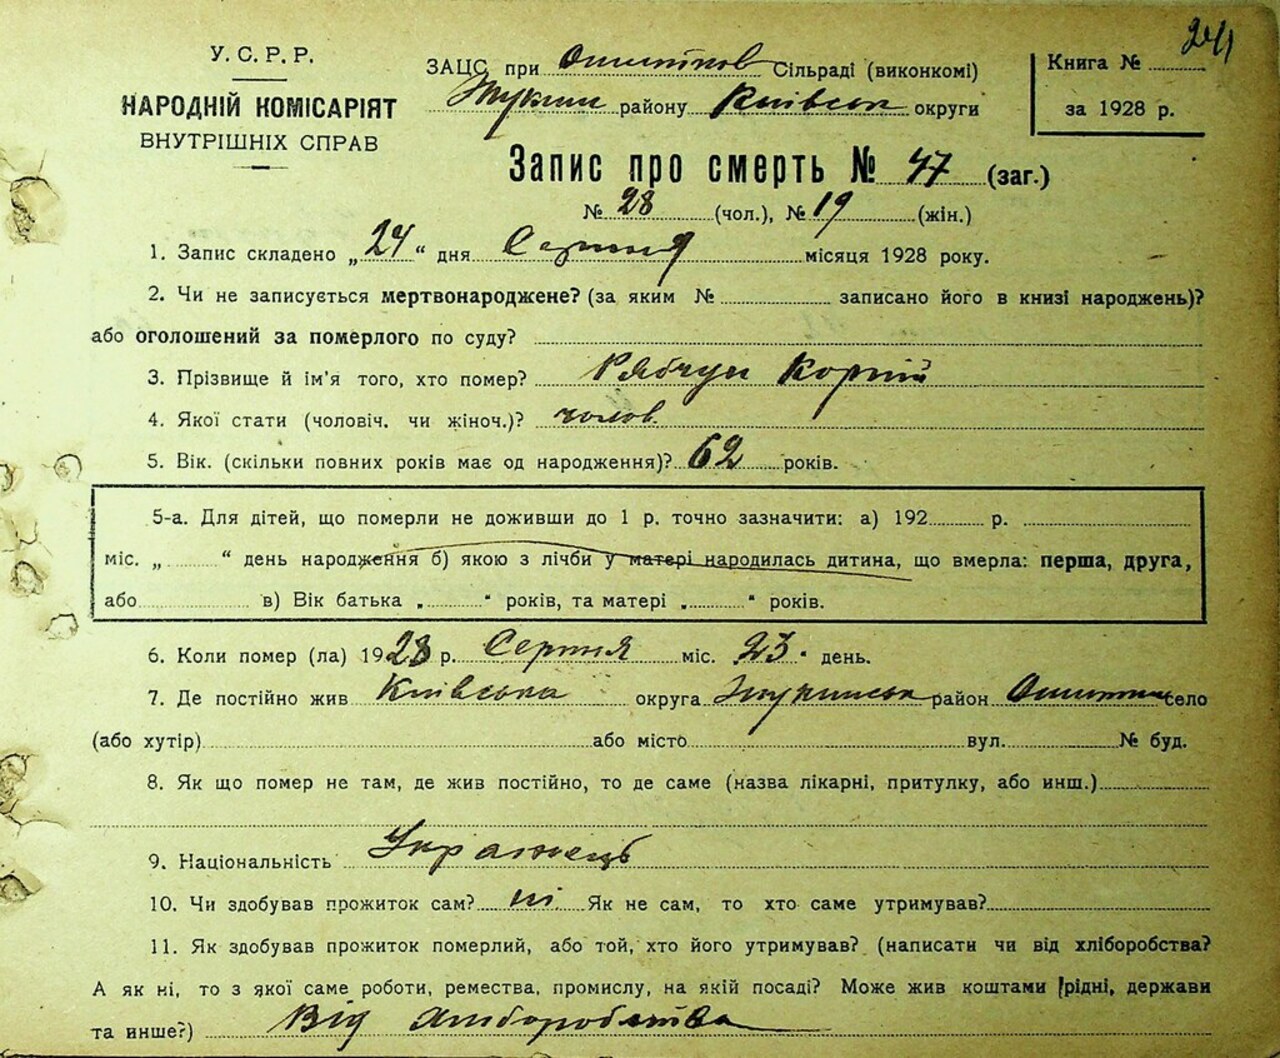 24
У.С.Р.Р.
НАРОДНІЙ КОМІСАРІЯТ
ВНУТРІШНІХ СПРАВ
ЗАЦС при Сільраді (виконкомі)
району Київськ округи
Книга №
за 1928 р.
Запис про смерть № 47 (заг.)
№ 28 (чол.), № 19 (жін.)
1. Запис складено „24“ дня Серпня місяця 1928 року.
2. Чи не записується мертвонароджене? (за яким № записано його в книзі народжень)?
або оголошений за померлого по суду?
3. Прізвище й ім'я того, хто помер? Рябчун Корній
4. Якої стати (чоловіч. чи жіноч.)? чолов.
5. Вік. (скільки повних років має од народження)? 62 років.
5-а. Для дітей, що померли не доживши до 1 р. точно зазначити: а) 192 р.
міс. „ “ день народження б) якою з лічби у матері народилась дитина, що вмерла: перша, друга,
або в) Вік батька „ “ років, та матері „ “ років.
6. Коли помер (ла) 1928 р. Серпня міс. 23 день.
7. Де постійно жив Київська округа район село
(або хутір) або місто вул. № буд.
8. Як що помер не там, де жив постійно, то де саме (назва лікарні, притулку, або инш.)
9. Національність Українець
10. Чи здобував прожиток сам? ні Як не сам, то хто саме утримував?
11. Як здобував прожиток померлий, або той, хто його утримував? (написати чи від хліборобства?
А як ні, то з якої саме роботи, ремества, промислу, на якій посаді? Може жив коштами рідні, держави
та инше?) Від хліборобства